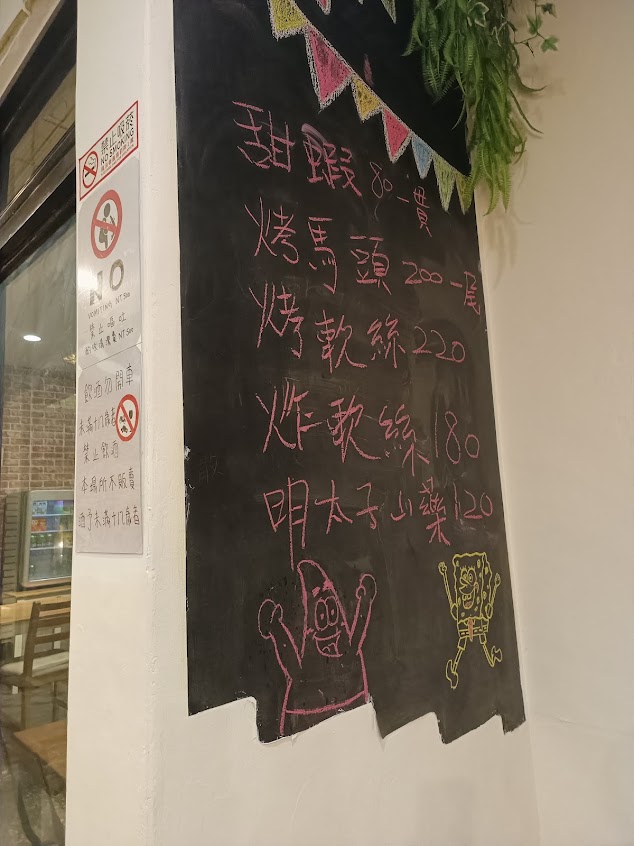 禁止吸菸
NO SMOKING
NO
VOMITING NT 500
禁止嘔吐
飲酒勿開車
未滿十八歲者
禁止飲酒
本場所不販賣
酒予未滿十八歲者
甜蝦 80一貫
烤馬頭 200一尾
烤軟絲 220
炸軟絲 180
明太子山藥 120